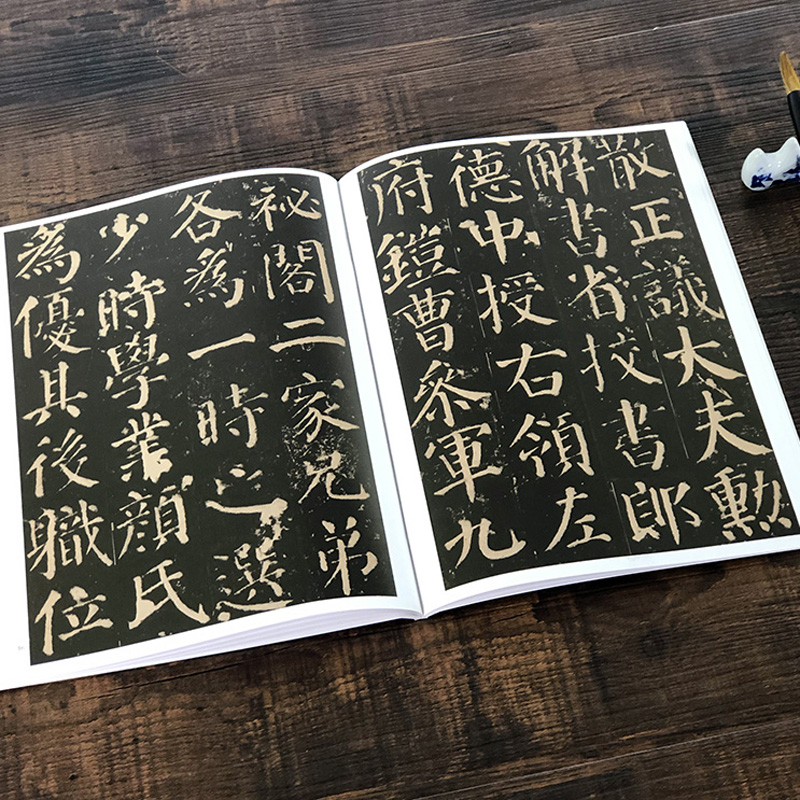 散正議大夫勳
解書省挍書郎
德中授右領左
府鎧曹叅軍九
祕閣二家兄弟
各爲一時之選
少時學業顔氏
為優其後職位